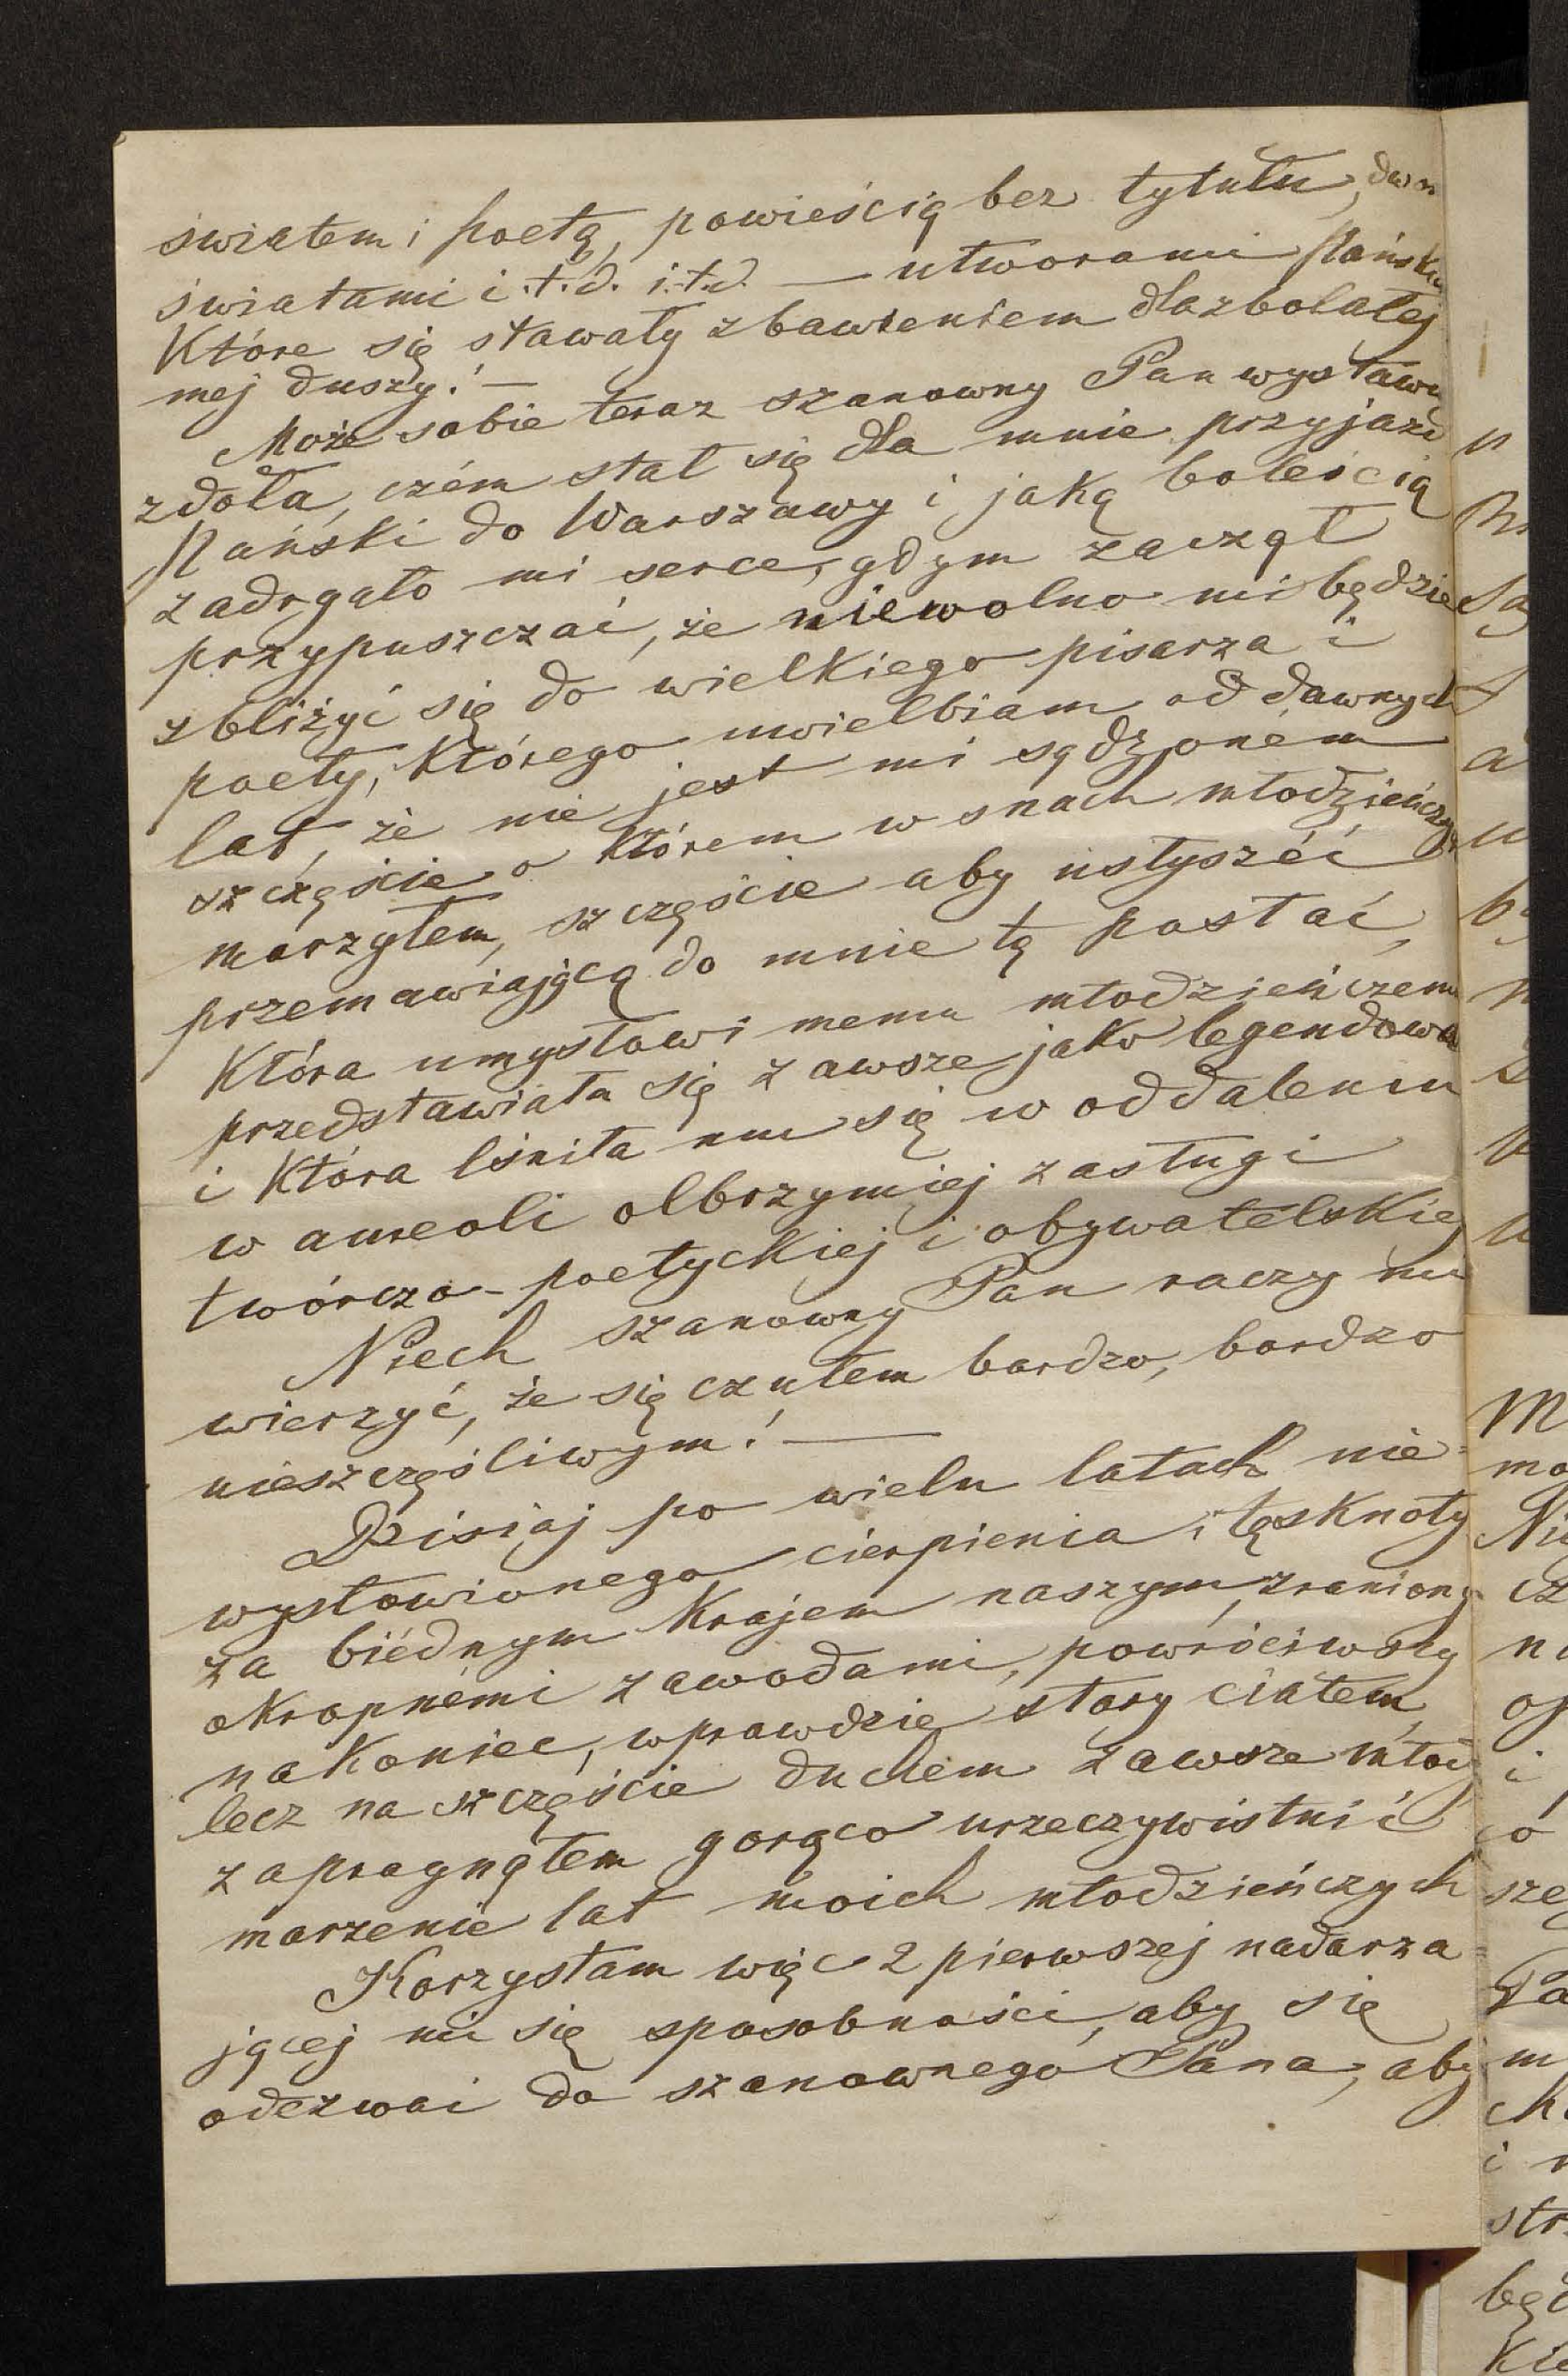 światem i poetą, powieścią bez tytułu, dwo
światami i.t.d. i.t.d. — utworami Pańsk
Które się stawały zbawieniem dla zbolałej
mej duszy! —
Może sobie teraz szanowny Pan wystaw
zdoła, czém stał się dla mnie przyjazd
Pański do Warszawy i jaką boleścią
zadrgało mi serce, gdym zaczął
przypuszczać, że niewolno mi będzie
zbliżyć się do wielkiego pisarza i
poety, Którego uwielbiam od dawnych
lat, że nie jest mi sądzoném
szczęście o Którem w snach młodzieńczy
marzyłem, szczęście aby usłyszéć
przemawiającą do mnie tą postać,
Która umysłowi memu młodzieńczemu
przedstawiała się zawsze jako legendowa
i Która lśniła mu się w oddaleniu
w aureoli olbrzymiej zasługi
twórczo-poetyckiej i obywatelskiej
Niech szanowny Pan raczy mi
wierzyć, że się czułem bardzo, bardzo
nieszczęśliwym! —
Dzisiaj po wielu latach nie=
wysłowionego cierpienia i tęsknoty
za biédnym Krajem naszym, zraniony
okropnémi zawodami, powróciwszy
nakoniec, wprawdzie stary ciałem,
lecz na szczęście duchem zawsze młody
zapragnąłem gorąco urzeczywistnić
marzenie lat moich młodzieńczych
Korzystam więc z pierwszej nadarza=
jącej mi się sposobności, aby się
odezwać do szanownego Pana, aby